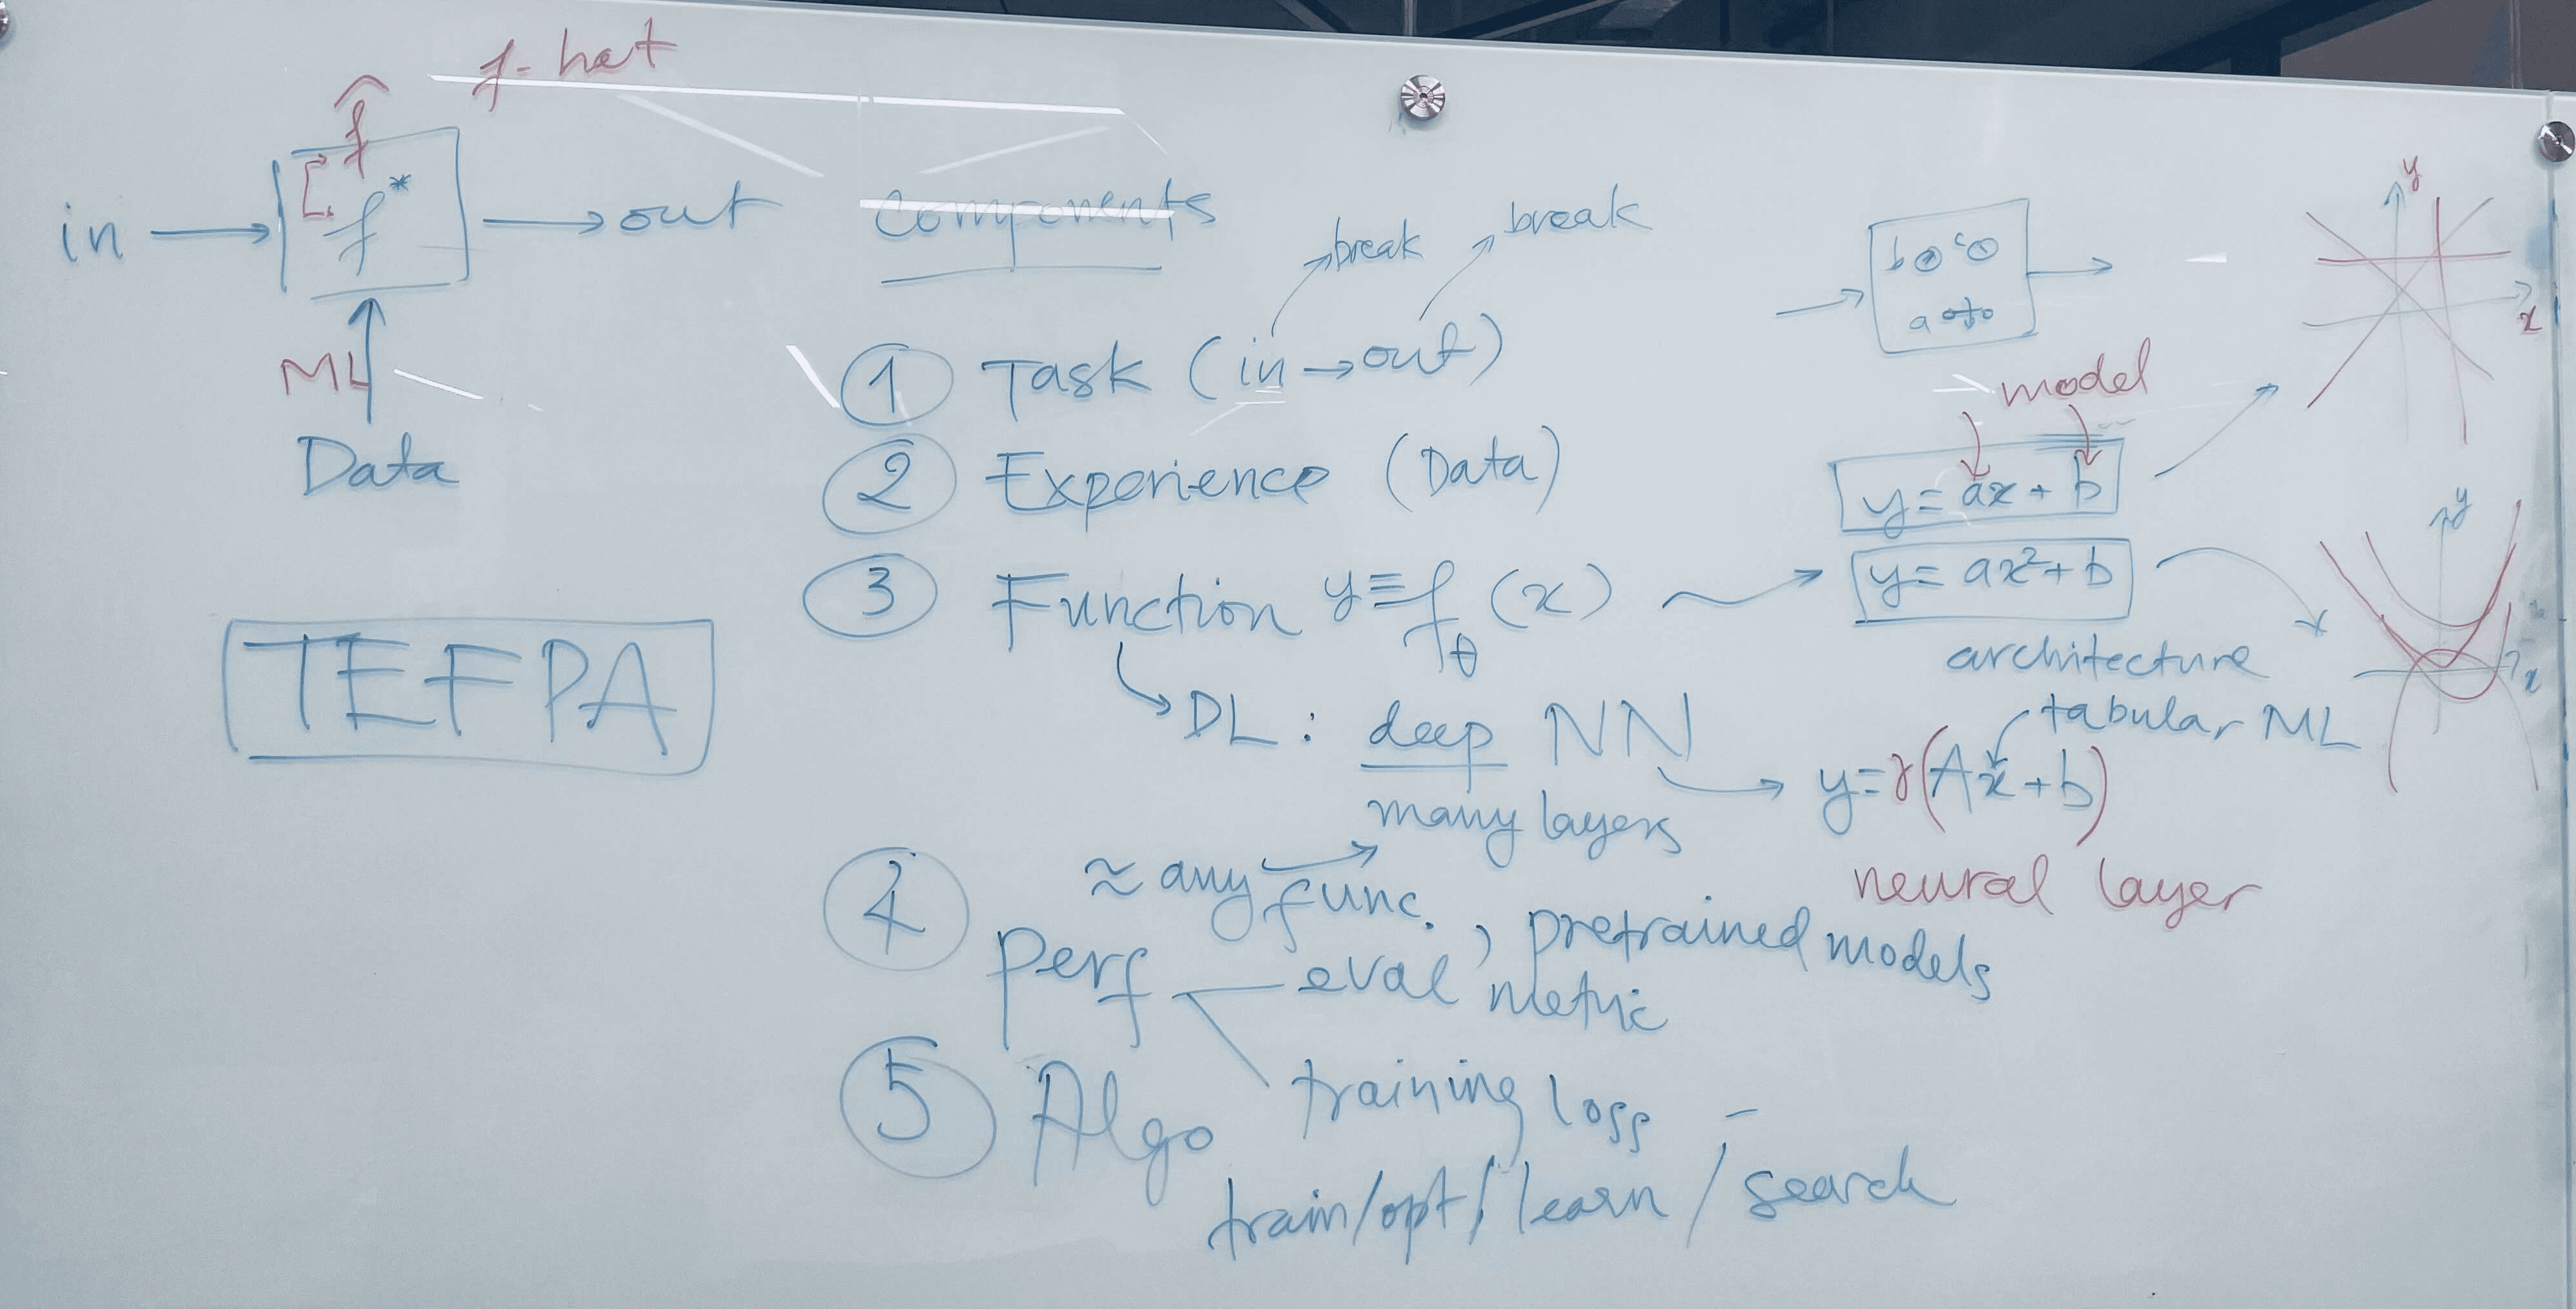 f-hat
f̂
in → f* → out
ML
Data
TEFPA
Components
break
break
① Task (in → out)
② Experience (Data)
③ Function y ≡ fθ (x)
DL: deep NN
many layers
≈ any func.
, pretrained models
④ Perf
eval metric
training loss
⑤ Algo
train/opt/learn/search
b c
a
model
y = ax + b
y = ax² + b
architecture
tabular ML
y = γ(Ax + b)
neural layer
y
x
y
x